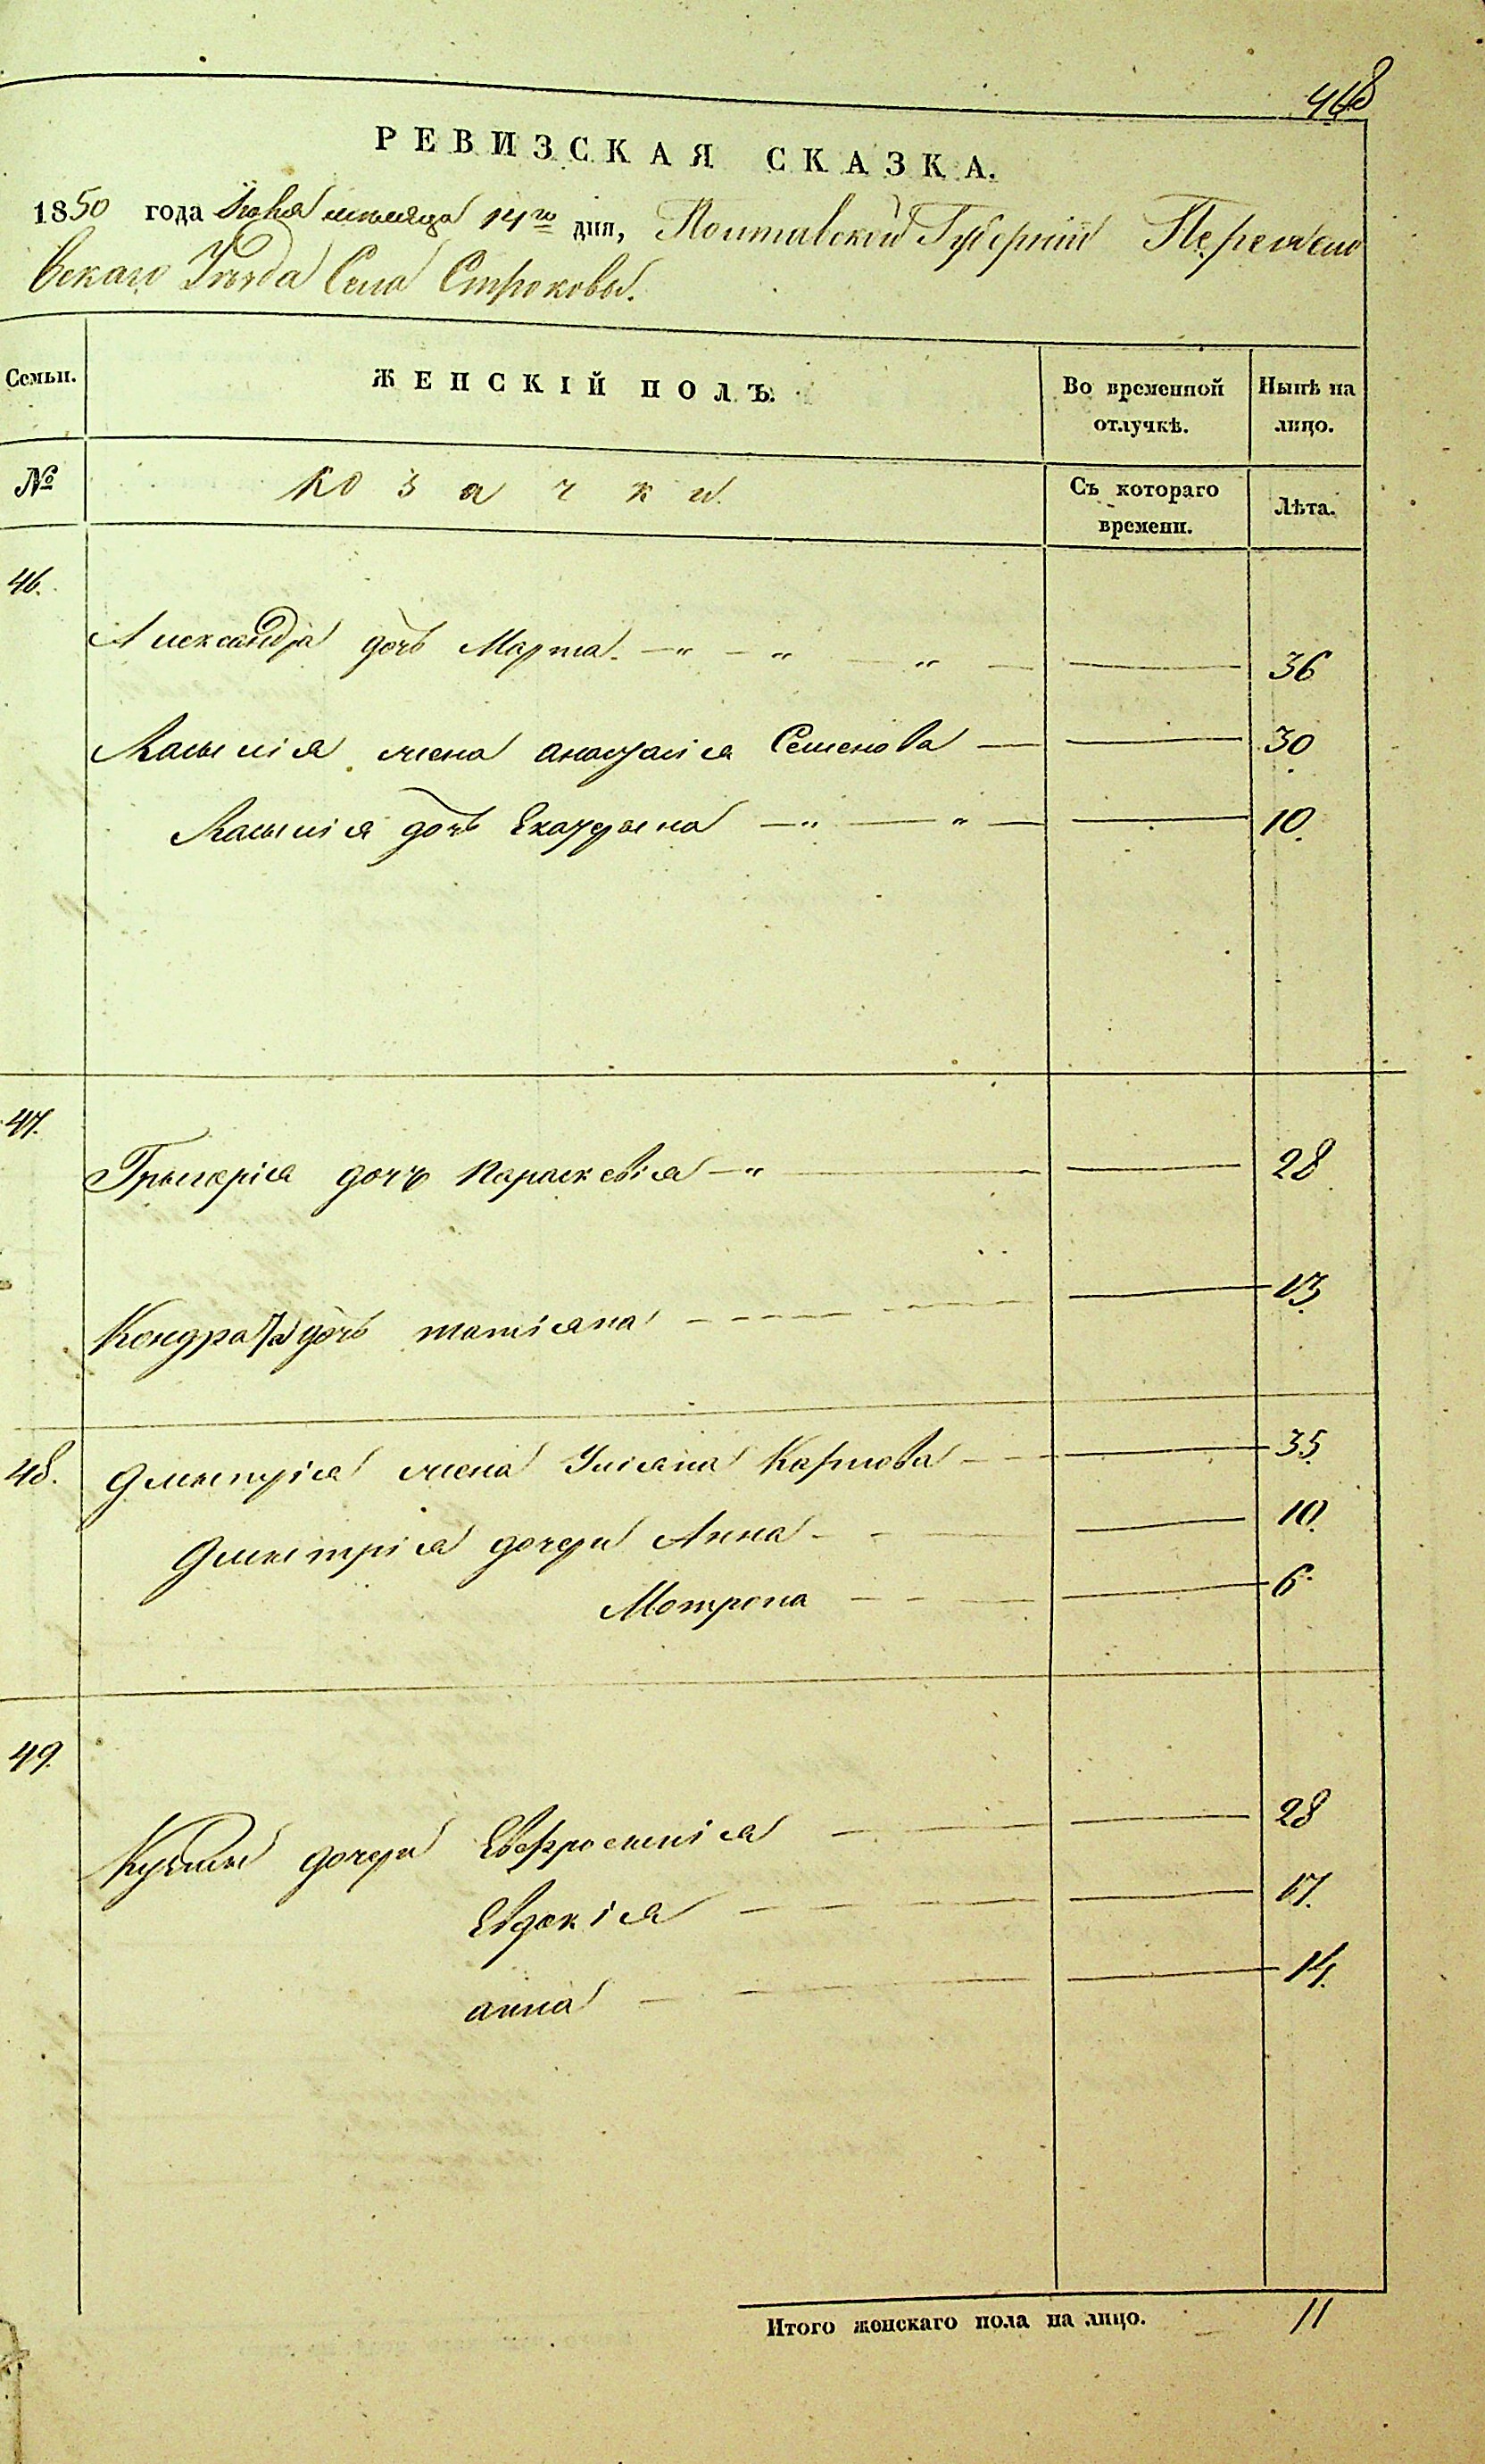 448
РЕВИЗСКАЯ СКАЗКА.
1850 года мѣсяца 14го дня, Полтавской Губерніи Переясло
вскаго Уѣзда Села Строковы.
Семьи. ЖЕНСКІЙ ПОЛЪ. Во временной отлучкѣ. Нынѣ на лицо.
№ козачки Съ котораго времени. Лѣта.
46.
Александра дочь Марта 36
жена Анастасія Семенова 30
дочь Екатерина 10.
47.
Григорія дочь Параскевія 28
Кондрата дочь татіана 13
48. Дмитрія жена Уліана Карпова 35
Дмитрія дочери Анна 10.
Мотрона 6
49.
Кузмы дочери Евфросинія 28
Евдокія 17.
анна 14.
Итого женскаго пола на лицо. 11